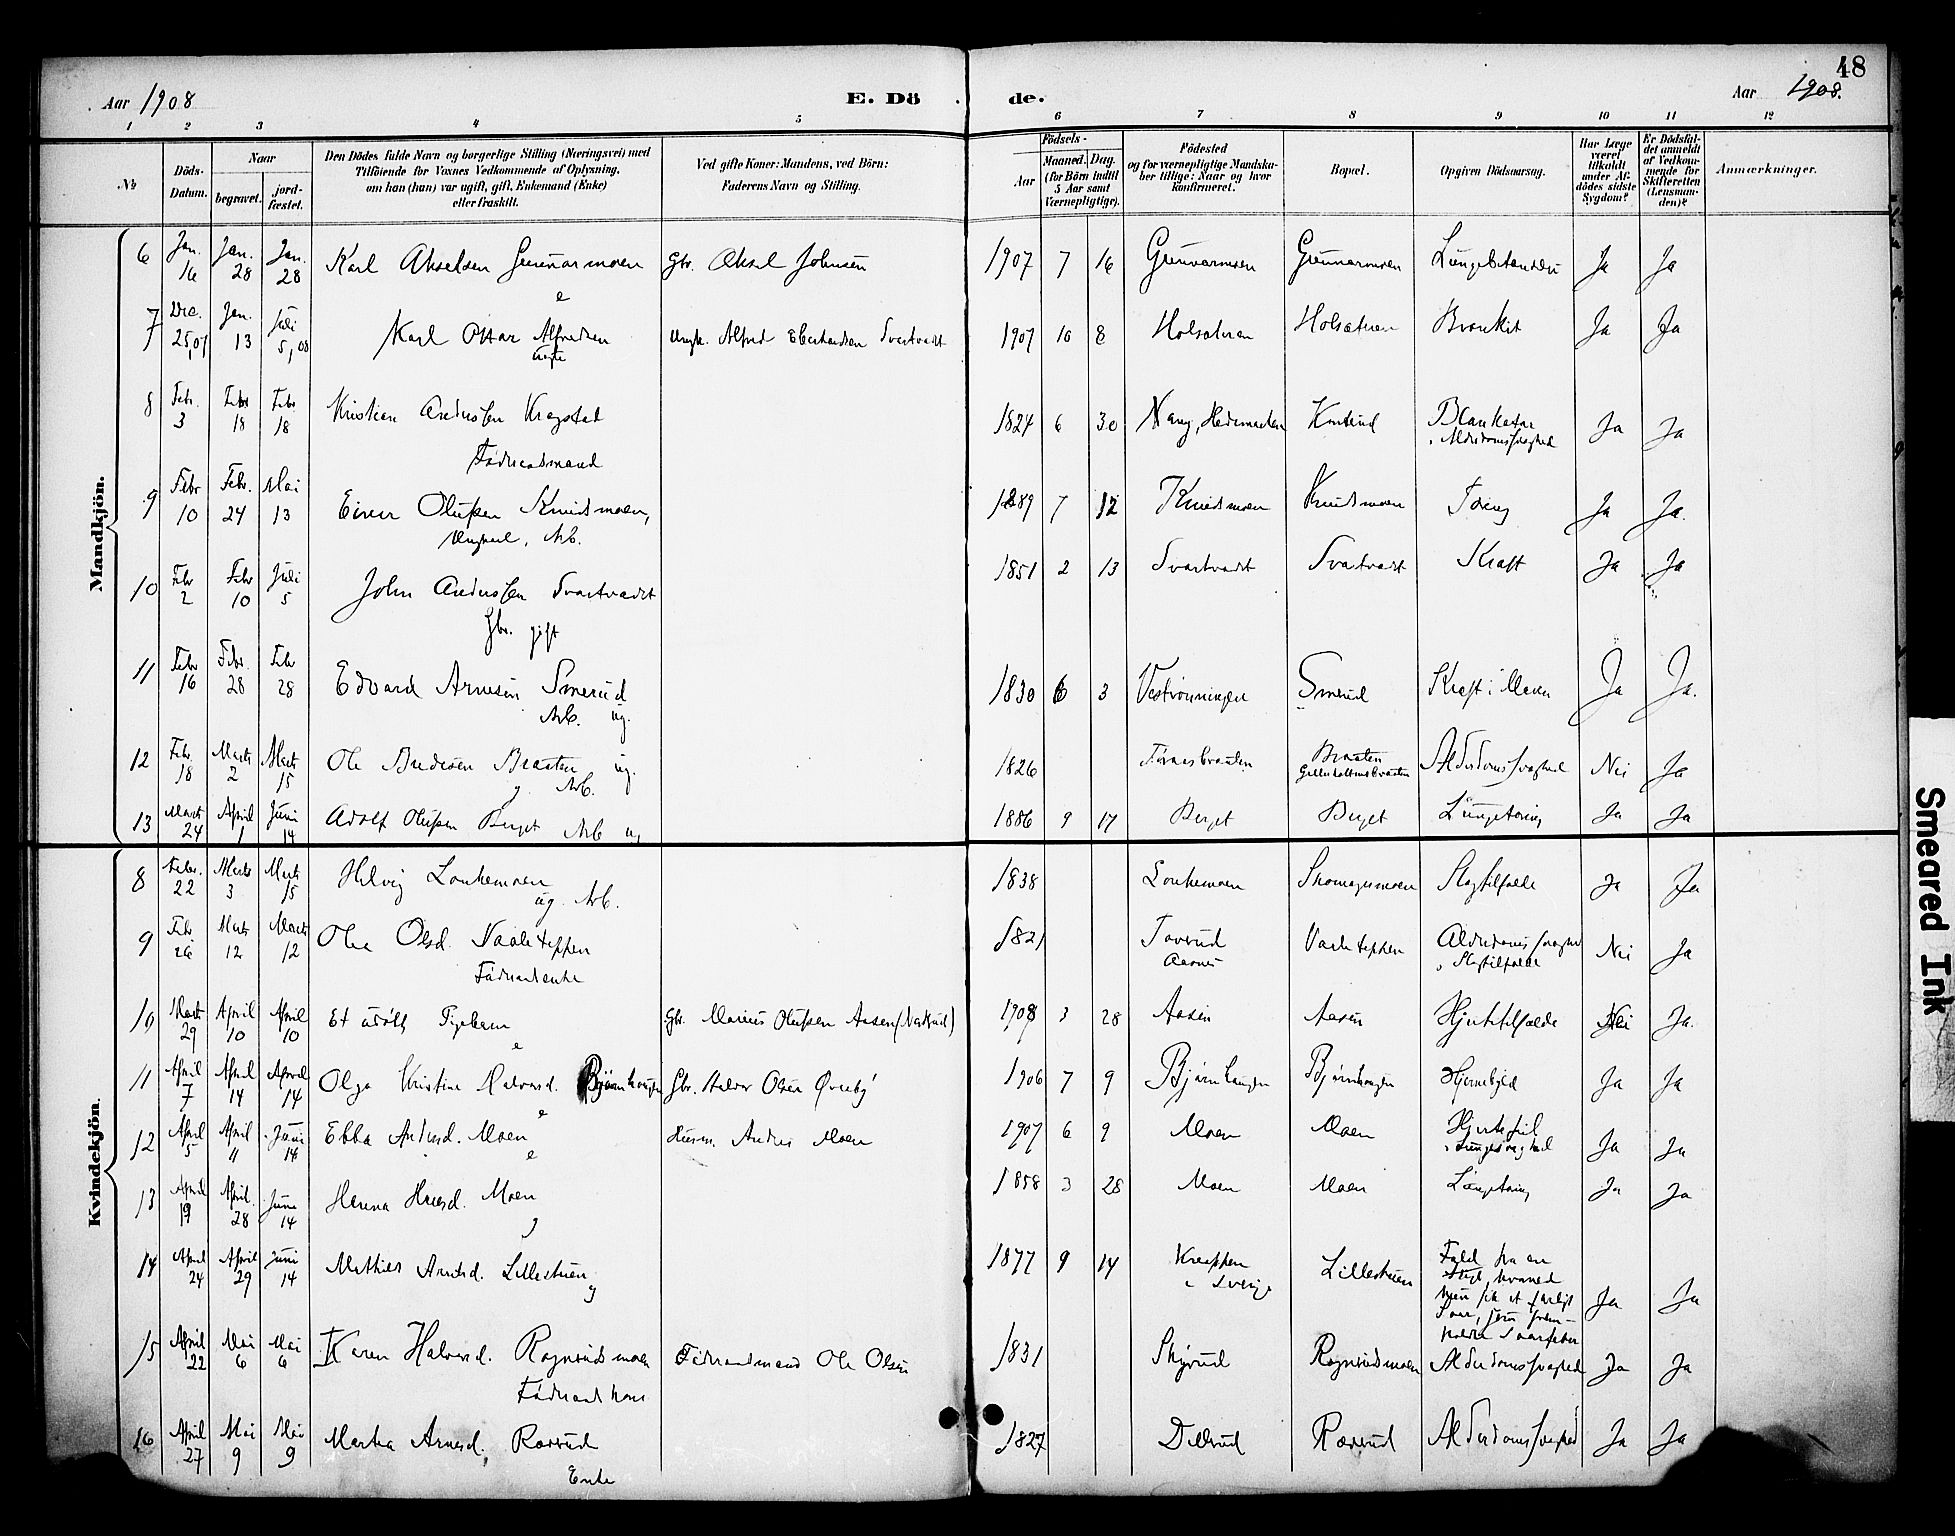 48
Aar 1908
E. Döde.
Aar 1908.
1 2 3 4 5 6 7 8 9 10 11 12
№
Döds-Datum.
Naar
begravet.
jord-fæstet.
Den Dödes fulde Navn og borgerlige Stilling (Næringsvei) med
Tilföiende for Voxnes Vedkommende af Oplysning,
om han (hun) var ugift, gift, Enkemand (Enke)
eller fraskilt.
Ved gifte Koner: Mandens, ved Börn:
Faderens Navn og Stilling.
Födsels-
Aar
Maaned. Dag.
(for Börn indtil
5 Aar samt
Værnepligtige).
Födested
og for værnepligtige Mandska-
ber tillige: Naar og hvor
konfirmeret.
Bopæl.
Opgiven Dödsaarsag.
Har Læge
været
tilkaldt
under Af-
dödes sidste
Sygdom?
Er Dödsfal-
det anmeldt
af Vedkom-
mende for
Skifteretten
(Lensman-
den)?
Anmærkninger.
Mandkjön.
6 Jan. 16 Jan. 28 Jan. 28 Karl Akselsen Gunnarmoen Gbr. Aksel Johnsen 1907 7 16 Gunnarmoen Gunnarmoen Ja Ja
e
7 Dec. 25,07 Jan. 13 Juli 5,08 Karl Ottar Alfredsen Ungk. Alfred Svartvadt 1907 10 8 Holsætren Holsætren Bronkit Ja Ja
uægte
8 Febr. 3 Febr 18 Febr 18 Kristian Andersen Kragstad 1824 6 30 Vang, Hedemarken Blærekatar Ja Ja
Alderdomssvaghed
Föderaadsmand
9 Febr 10 Febr. 24 Mai 13 Einar Olufsen Knudsmoen, 1889 7 12 Knudsmoen Knudsmoen Tæring Ja Ja.
Ungkarl, Arb.
10 Febr 2 Febr 10 Juli 5 John Andersen Svartvadt 1851 2 13 Svartvadt Svartvadt Kræft Ja Ja
Gbr. gift
11 Febr 16 Febr. 28 Febr 28 Edvard Arnesen Smerud 1830 6 3 Veströnningen Smerud Kræft i Maven Ja Ja.
Arb. ug.
12 Febr. 18 Marts 2 Marts 15 Ole Andersen Braaten ug. 1826 Braaten Alderdomssvaghed Nei Ja
Arb.
13 Marts 24 April 1 Juni 14 Adolf Olufsen Berget Arb ug 1886 9 17 Berget Berget Lungetæring Ja Ja
Kvindekjön.
8 Febr. 22 Marts 3 Marts 15 Helvig Loukemoen 1838 Loukemoen Skomagermoen Slagtilfælde Ja Ja
ug. Arb.
9 Febr 26 Marts 12 Marts 12 Olia Olsd. Vaaleteppen 1821 Vaaleteppen Alderdomssvaghed Nei Ja
Slagtilfælde
Föderaadsenke
10 Marts 29 April 10 April 10 Et udöbt Pigebarn Gbr. Marius Olufsen Aasen 1908 3 28 Aasen Aasen Hjertetilfælde Nei Ja.
e
11 April 7 April 14 April 14 Olga Kristine Halvorsd. Björnhaugen Gbr. Halvor Olsen Överby 1906 7 9 Björnhaugen Björnhaugen Ja Ja
e
12 April 5 April 11 Juni 14 Ebba Andersd. Moen Husm. Anders Moen 1907 6 9 Moen Moen Hjertefeil Ja Ja
Lungesvaghed
e
13 April 19 April 28 Juni 14 Moen 1858 3 28 Moen Moen Lungetæring Ja Ja
g
14 April 24 April 29 Juni 14 Lillestuen 1877 9 14 Lillestuen Fald fra en Ja Ja
Sverige
g
15 April 22 Mai 6 Mai 6 Karen Halvorsd. Rognrudsmoen Föderaadsmand Ole Olsen 1831 Skyrud Rognrudsmoen Alderdomssvaghed Ja Ja
Föderaadskone
16 April 27 Mai 9 Mai 9 Martha Arnesd. Rösrud 1827 Dölsrud Rösrud Alderdomssvaghed Ja Ja
Enke
Smeared Ink